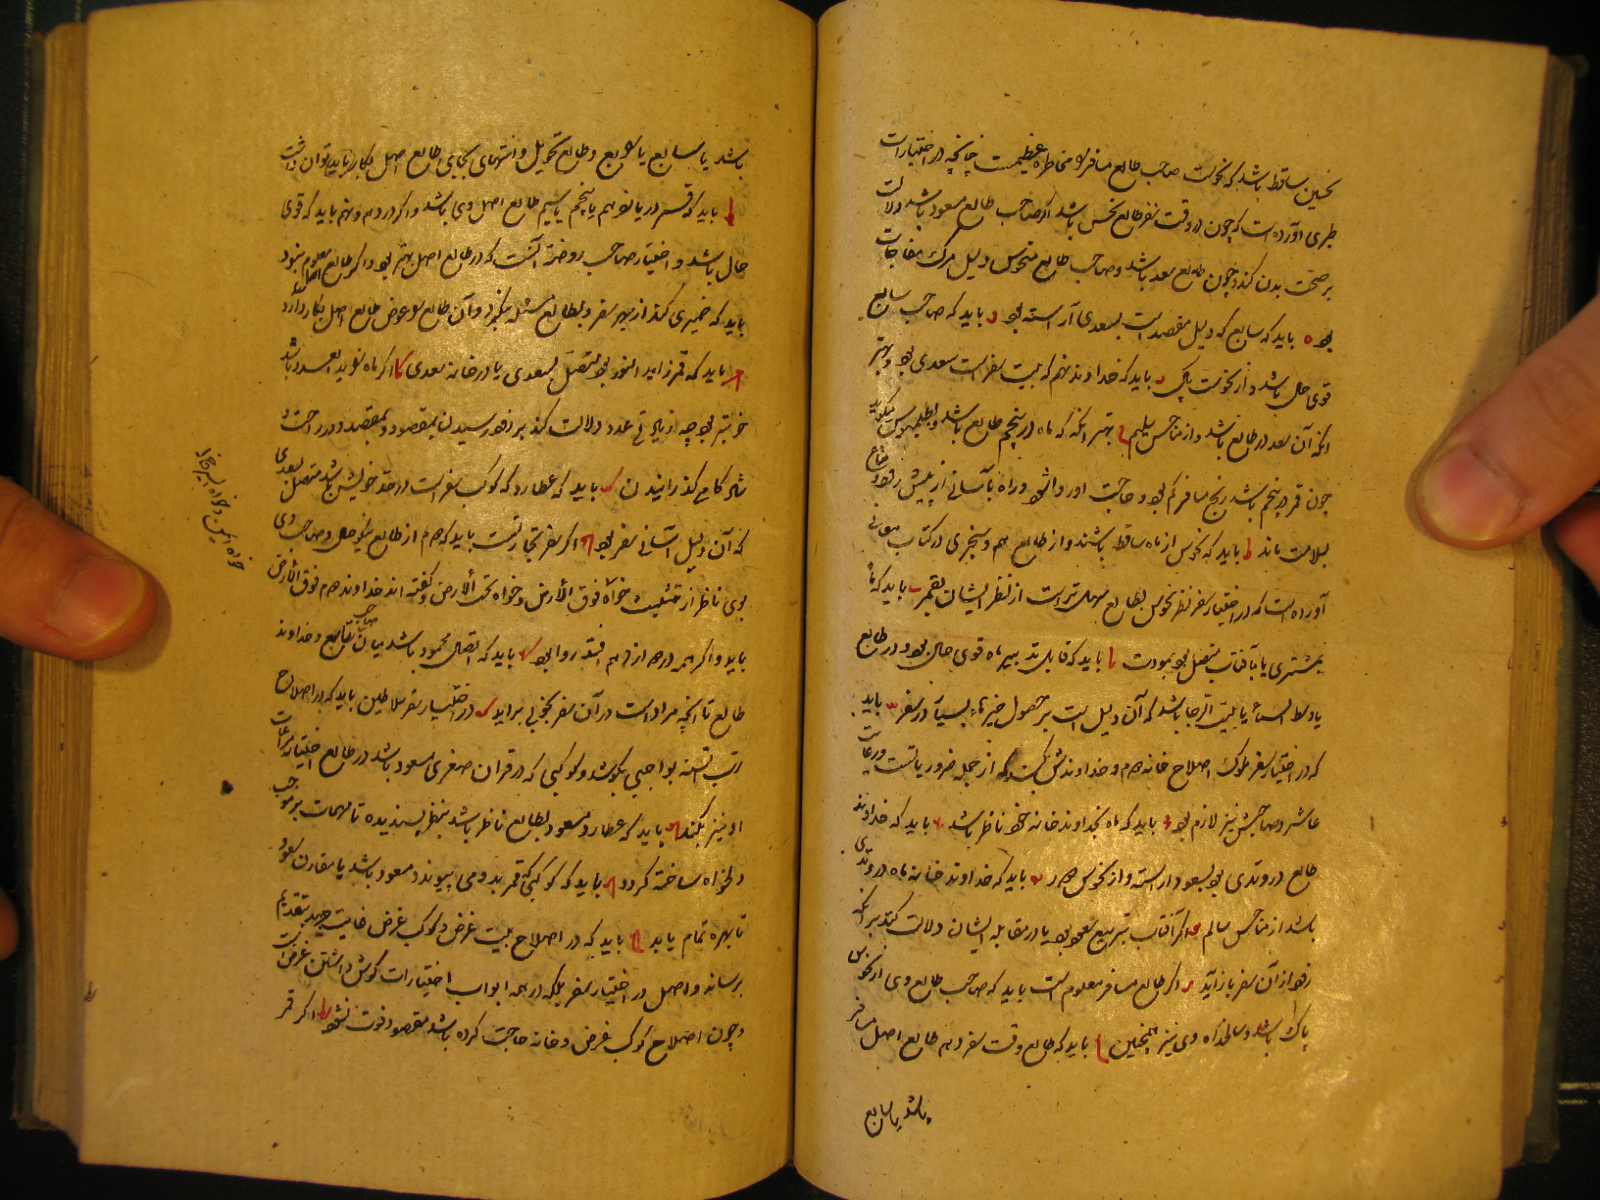 نحسین ساقط باشد که نحوست صاحب طالع مسافر را مخاطره عظیمست چنانچه در اختیارات
طبری آورده است که چون در وقت سفر طالع نحس باشد اگر صاحب طالع مسعود باشد دلالت
بر صحت بدن کند و چون طالع سعد باشد و صاحب طالع منحوس دلیل مرگ مفاجات
بود ه باید که سابع که دلیل مقصد است بسعدی آراسته بود و باید که صاحب سابع
قوی حال باشد و از نحوست پاک باید که خداوند نهم که بیت سفر است سعدی بود و بهتر
آنکه آن سعد در طالع باشد و از مناحس سلیم بهتر آنکه که ماه در پنجم طالع باشد و بطلمیوس میگوید
چون قمر در پنجم باشد رنج مسافر کم بود و حاجت او روا شود و راه بآسانی از پیش رود و متاع
بسلامت ماند ط باید که نحوس از ماه ساقط باشند و از طالع هم و سنجری در کتاب معانی
آورده است که در اختیار سفر نظر نحوس بطالع سهل تر است از نظر ایشان بقمر باید که ماه
بمشتری یا بآفتاب متصل بود بمودت یا باید که قابل تدبیر ماه قوی حال بود در طالع
یا وسط السماء یا بیت الرجا باشد که آن دلیل است بر حصول خیرهاء بسیار در سفر باید
که در اختیار سفر ملوک اصلاح خانه دهم و خداوندش بکنند که از جمله ضروریاتست و رعایت
عاشر و صاحبش نیز لازم بود باید که ماه بخداوند خانه خود ناظر باشد باید که خداوند
طالع در وتدی بود بسعود آراسته و از نحوس دور باید که خداوند خانه ماه در وتدی
باشد از مناحس سالم اگر آفتاب بتربیع سعود بود یا در مقابله ایشان دلالت کند بر آنکه
زود از آن سفر باز آید اگر طالع مسافر معلوم است باید که صاحب طالع وی از نحوس
پاک باشد و سالخداه وی نیز همچنین باید که طالع وقت سفر دهم طالع اصل مسافر
باشد یا سابع
باشد یا سابع یا رابع و طالع تحویل و انتهای بجای طالع اصل بکار باید توان داشت
باید که قمر در یازدهم یا پنجم یا سیم طالع اصل وی باشد و اگر در دهم و نهم باید که قوی
حال باشد و اختیار صاحب روضه آنست که در طالع اصل بهتر بود و اگر طالع اصل معلوم نبود
باید که ضمیری کند از بهر سفر و بطالع مسئله بنگرد و آن طالع را عوض طالع اصل بکار دارد
باید که قمر زاید النور بود متصل بسعدی یا در خانه سعدی اگر ماه زاید بعدد باشد
خوبتر بود چه از زیادتی عدد دلالت کند بر زود رسیدن بمقصود و بمقصد و در راحت
شاد کامی گذرانیدن باید که عطارد که کوکب سفر است در حد خویش باشد متصل بسعدی
که آن دلیل آسانی سفر بود اگر سفر تجارتست باید که دهم از طالع نیکو حال و صاحب وی
بوی ناظر از تثلیث خواه فوق الارض و خواه تحت الارض و گفته اند خداوند دهم فوق الارض
باید و اگر هم در دهم افتد روا بود باید که اتصال محمود باشد میان صاحب تاسع و خداوند
طالع تا آنچه مراد است در آن سفر بخوبی برآید در اختیار سفر سلاطین باید که در اصلاح
رب السنه بواجبی بکوشد و کوکبی که در قران صغری مسعود باشد در طالع اختیار مراعات
او نیز بکنند باید که عطارد مسعود بطالع ناظر باشد بنظر پسندیده تا مهمات بر موجب
دلخواه ساخته گردد باید که کوکبی که قمر بدو می پیوندد مسعود باشد یا مقارن سعود
تا بهره تمام یابد باید که در اصلاح بیت غرض و کوکب غرض غایت جهد بتقدیم
برساند و اصل در اختیار سفر بلکه در همه ابواب اختیارات گوش داشتن غرض است
و چون اصلاح کوکب غرض و خانه حاجت کرده باشد مقصود فوت نشود ط اگر قمر